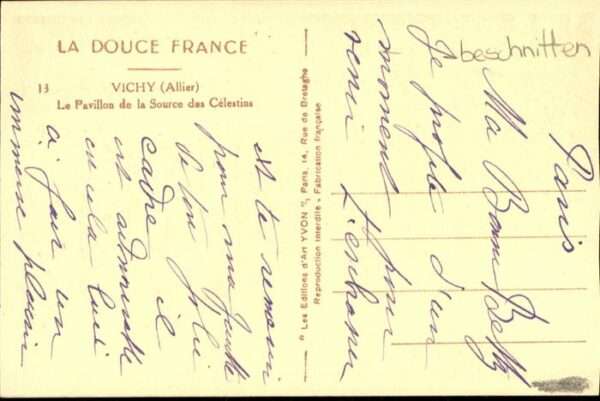 LA DOUCE FRANCE
13 VICHY (Allier)
Le Pavillon de la Source des Célestins
" Les Editions d'Art YVON ", Paris, 14, Rue de Bretagne
Reproduction Interdite - Fabrication française
beschnitten
Paris
Ma Bonne Betty
Je profite d'un
moment pour
venir
et te
pour ma
de ton joli
cadre il
est admirable
et cela lui
a fait un
immense plaisir